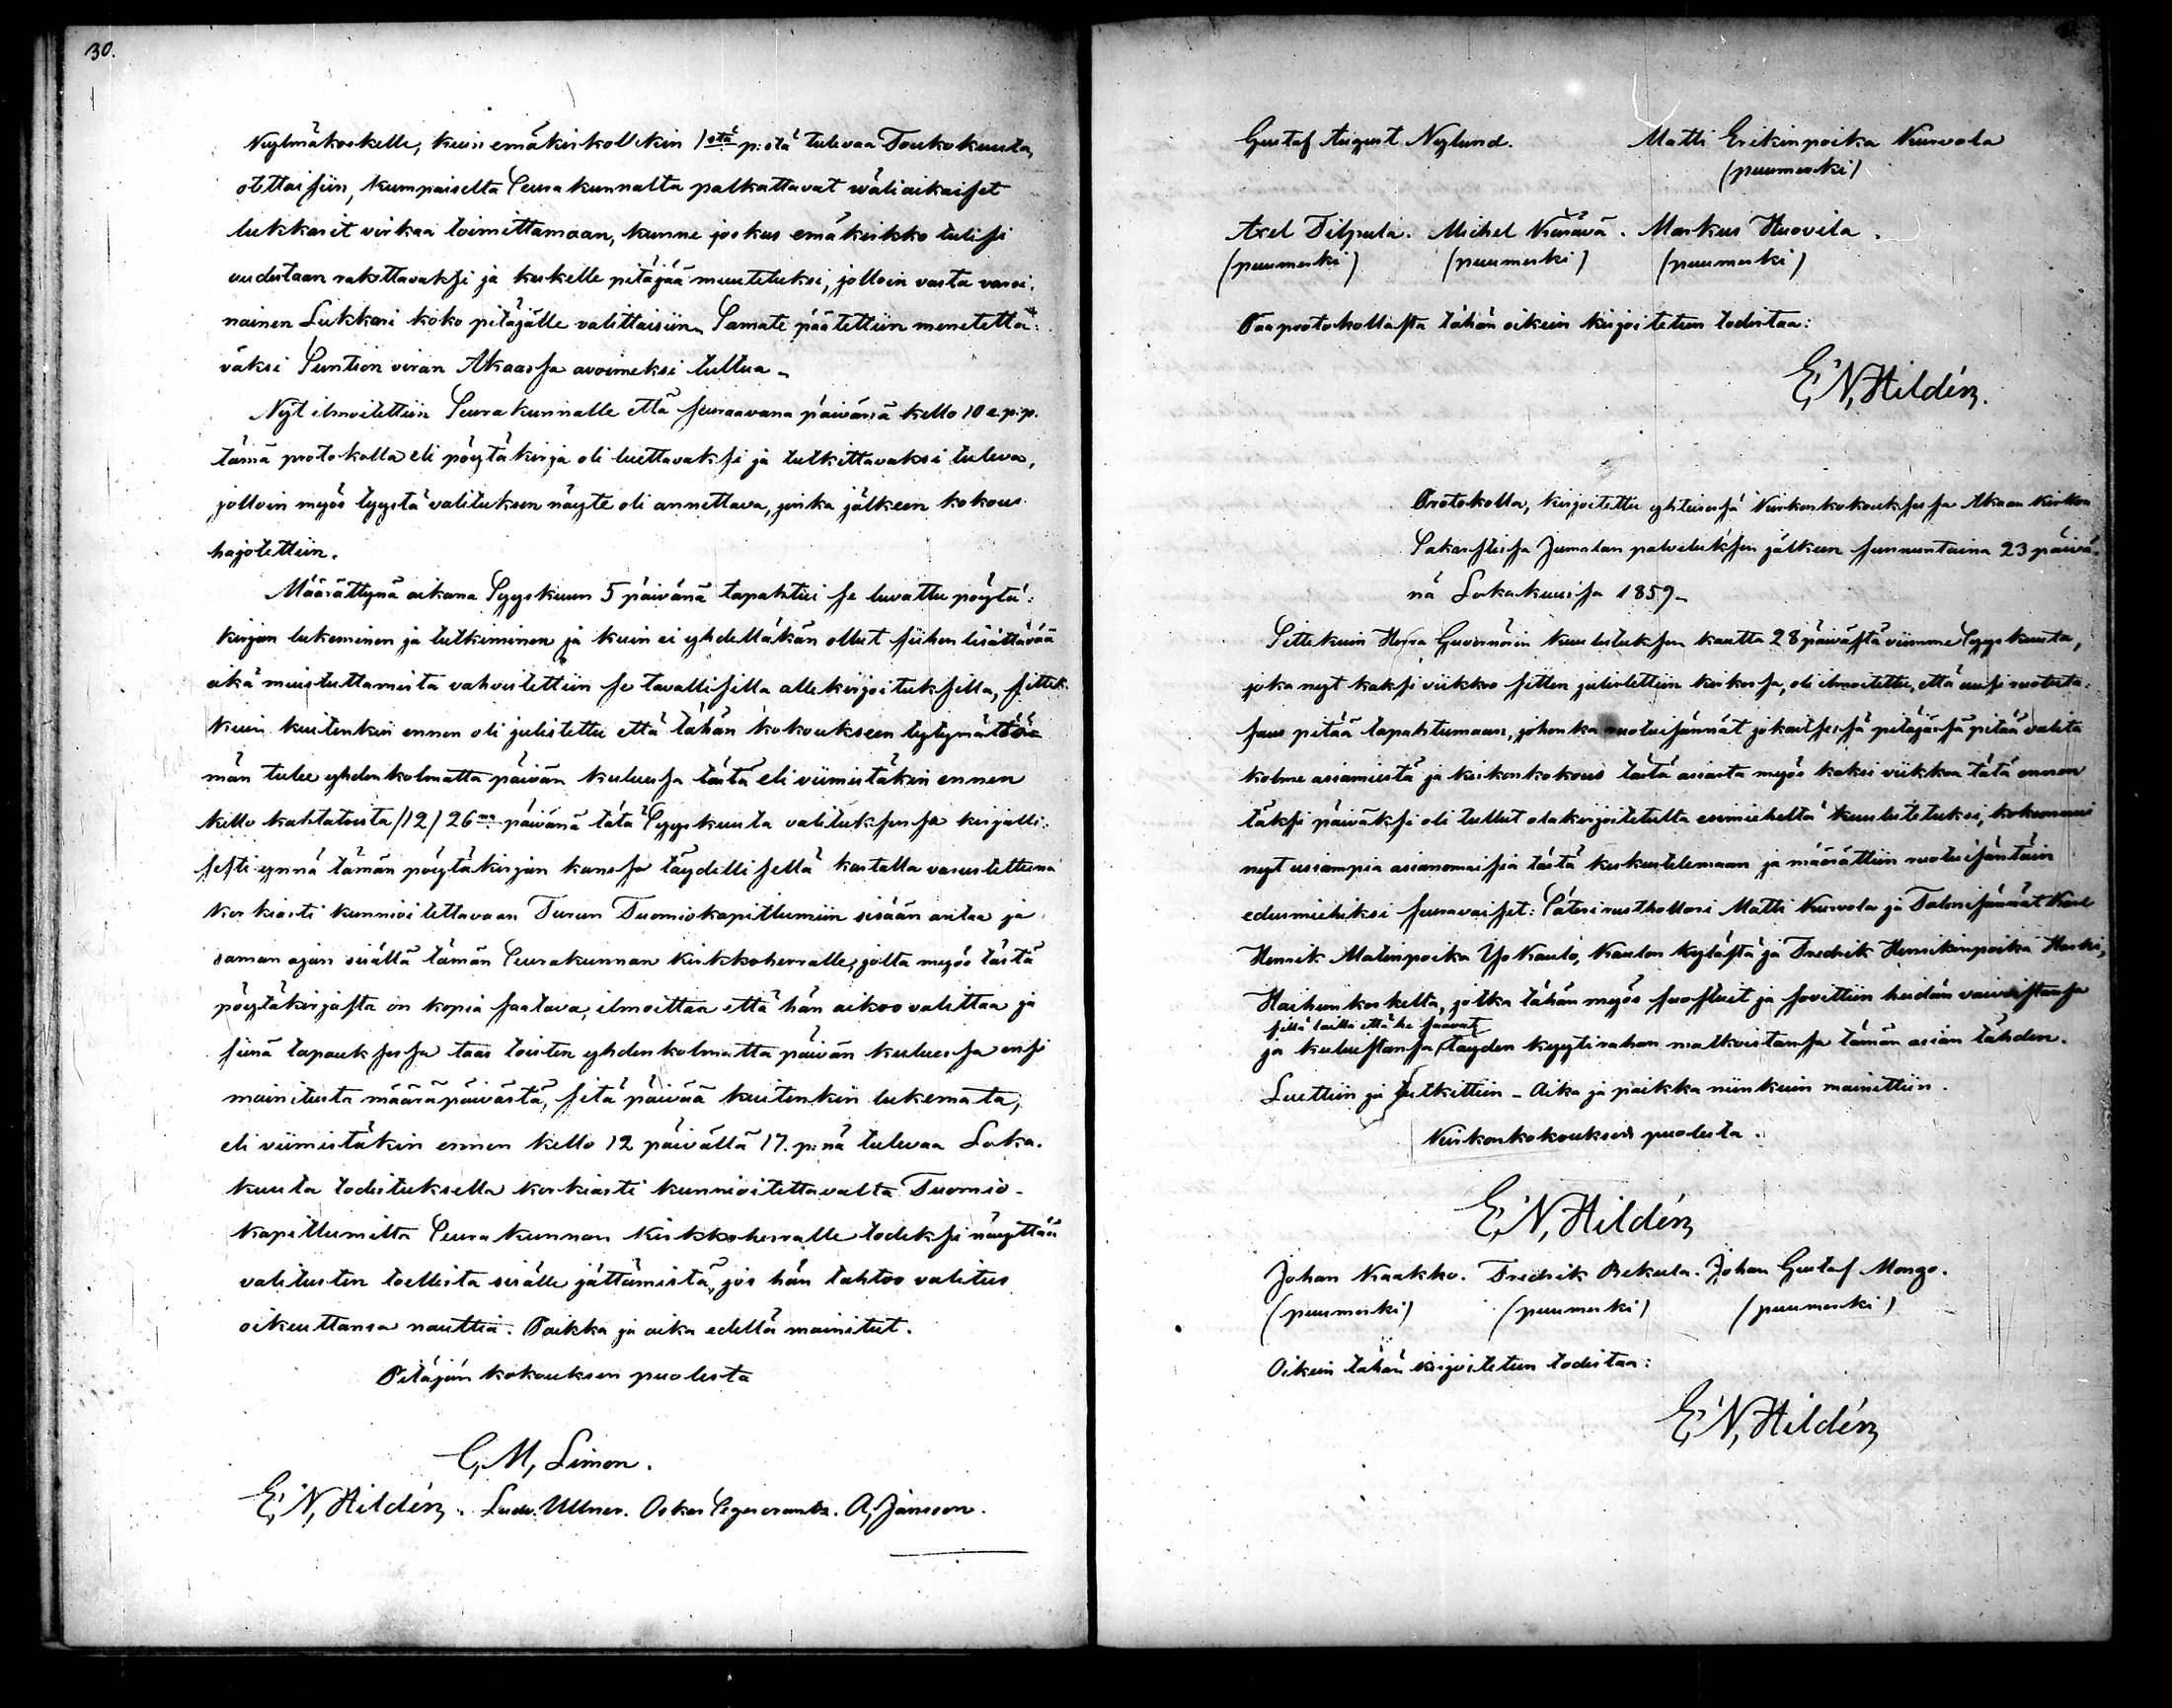 30.
Kylmäkoskelle, kuin emäkirkollekin 1stä p:stä tulevaa Toukokuuta,
otettaisiin, kumpaiselta Seurakunnalta palkattavat wäliaikaiset
lukkarit virkaa toimittamaan, kunne joskus emäkirkko tulisi
uudestaan rakettavaksi ja keskelle pitäjää muutetuksi, jolloin vasta varsi,
nainen Lukkari koko pitäjälle valittaisiin. Samate päätettiin menetettä:
väksi Suntion viran Akaassa avoimeksi tultua.
Nyt ilmoitettiin Seurakunnalle että seuraavana päivänä kello 10 e.p.p.
tämä protokolla eli pöytäkirja oli luettavaksi ja tutkittavaksi tuleva,
jolloin myös tyystä valituksen näyte oli annettava, jonka jälkeen kokous
hajotettiin.
Määrättynä aikana Syyskuun 5 päivänä tapahtui se luvattu pöytä:
kirjan lukeminen ja tutkiminen ja kuin ei yhdelläkän ollut siihen lisättävää
eikä muistuttamista vahvistettiin se tavallisella allekirjoituksella, sittek
kuin kuitenkin ennen oli julistettu että tähän kokoukseen tytymättö=
män tulee yhdenkolmatta päivän kuluessa tästä eli viimistäkin ennen
kello kahtatoista /12/ 26na päivänä tätä Syyskuuta valituksessa kirjalli:
sesti ynnä tämän pöytäkirjan kanssa täydellisellä kartalla varustettuna
korkiasti kunnioitettavaan Turun Tuomiokapitlumiin sisään antaa ja
saman ajan sisällä tämän Seurakunnan kirkkoherralle, jolta myös tästä
pöytäkirjasta on kopia saatava, ilmoittaa että hän aikoo valittaa ja
siinä tapauksessa taas toisten yhdenkolmatta päivän kuluessa ensi
mainitusta määräpäivästä, sitä päivää kuitenkin lukemata,
eli viimistäkin ennen kello 12 päivällä 17. p:nä tulevaa Loka.
kuuta todistuksella korkiasti kunnioitettavalta Tuomio-
kapitlumilta Seurakunnan kirkkoherralle todeksi näyttää
valitusten toellista sisälle jättämistä, jos hän tahtoo valitus
oikeuttansa nauttia. Paikka ja aika edellä mainitut.
Pitäjän kokouksen puolesta
C, M, Limon.
E, N, Hildén, . Ludv. Ullner. Oskar Segercrantz. A, Jansson.
Gustaf August Nylund. Matti Erikinpoika Kurvola
(puumerki)
Axel Tilpula. Michel Kärävä. Markus Huovila.
(puumerki) (puumerki) (puumerki)
Pääprotokollasta tähän oikein kirjoitetun todistaa:
E, N, Hildén,.
Protokolla, kirjoitettu yhteisessä Kirkonkokouksessa Akaan kirkon
Sakastissa Jumalan palveluksen jälkeen sunnuntaina 23 päivä:
nä Lokakuussa 1859.
Sittekuin Herra Guvernörin kuulutuksen kautta 28 päivästä viimme Syyskuuta,
joka nyt kaksi viikkoo sitten julistettiin kirkossa, oli ilmoitettu, että uusi ruotuta:
saus pitää tapahtumaan, johonka ruotuisännät jokaitsessa pitäjässä pitää valita
kolme asiamiestä ja kirkonkokous tästä asiasta myös kaksi viikkoa tätä ennen
täksi päiväksi oli tullut alakirjoitetulta esimieheltä kuulutetuksi, kokoonnui
nyt usiampia asianomaisia tästä keskustelemaan ja määrättiin ruotuisäntäin
edusmiehiksi seuraavaiset: Säterirusthollari Matti Kurvola ja Talonisännät Karl
Henrik Matinpoika Yli Kaulo, Kaulon kylästä ja Fredrik Henrikinpoika Harki,
Haihunkoskelta, jotka tähän myös suostuit ja sovittiin heidän vaivastansa
sillä lailla että he saavat
ja kulustansa, täyden kyytirahan matkoistansa tämän asian tähden.
Luettiin ja tutkittiin - Aika ja paikka niinkuin mainittiin.
Kirkonkokouksen puolesta.
E, N, Hildén,
Johan Kaakko. Fredrik Rekula. Johan Gustaf Mongo.
(puumerki) (puumerki) (puumerki)
Oikein tähän kirjoitetun todistaa:
E, N, Hildén,